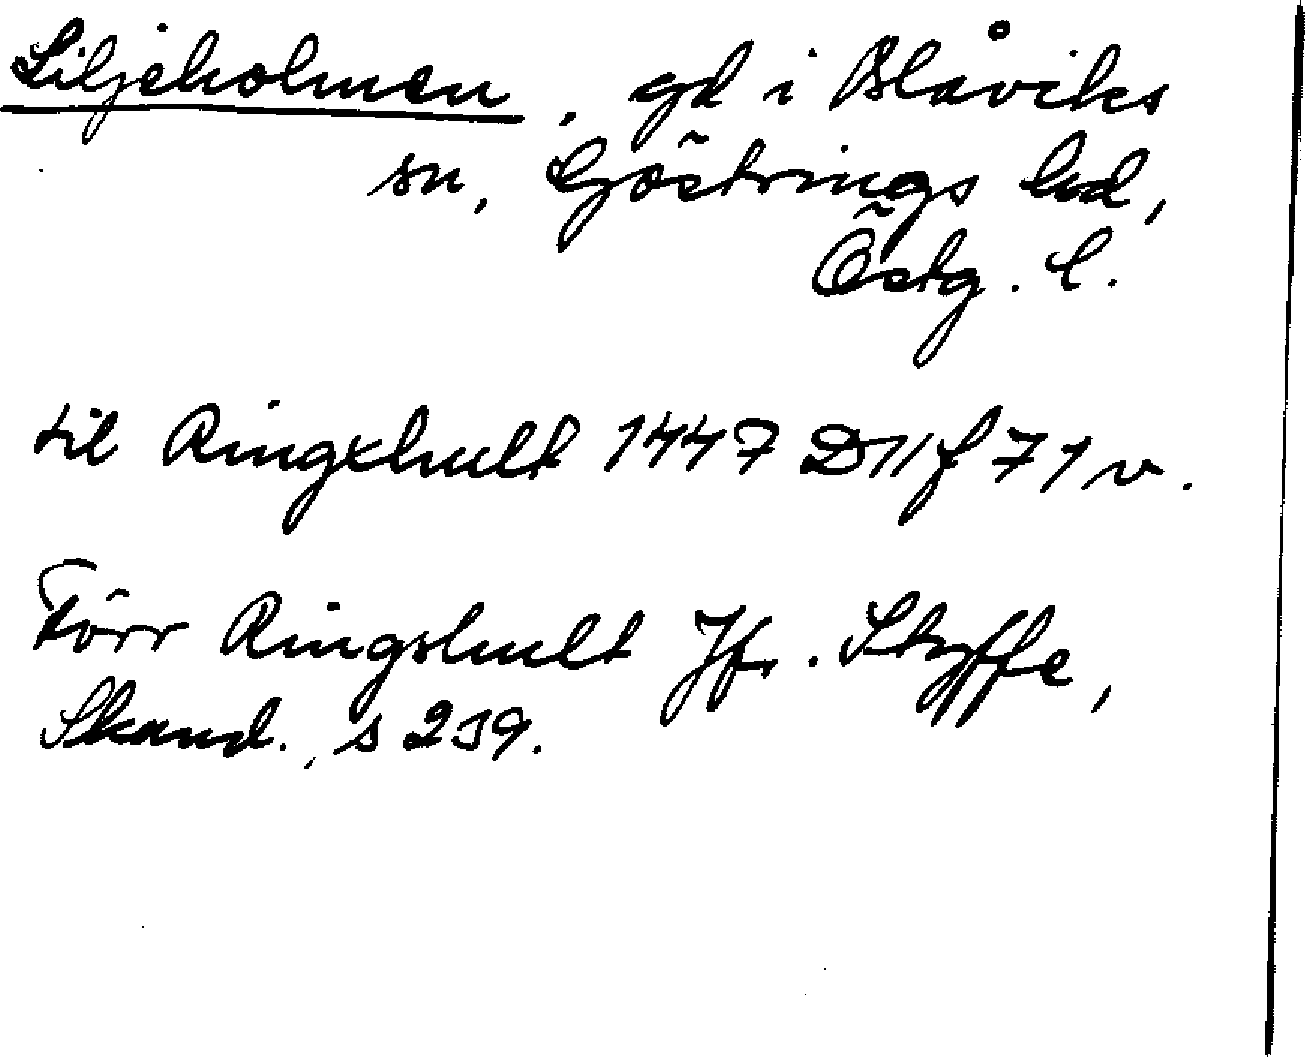 Liljeholmen, gd i Blåviks
sn, Göstrings hd,
Östg. l.
til Ringxhult 1447 D11 f 71 v.
Förr Ringshult Jfr. Styffe,
Skand., s 239.